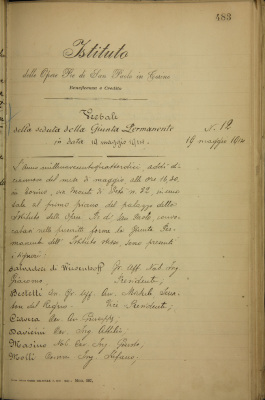 483
Istituto
delle Opere Pie di San Paolo in Torino
Beneficenza e Credito
Verbale
della seduta della Giunta Permanente
in data 19 maggio 1914.
N. 12
19 maggio 1914
L'anno millenovecentoquattordici, addì di-
cianove del mese di maggio, alle ore 16,30,
in Torino, via Monte di Pietà n. 32, in una
sala al primo piano del palazzo dello
Istituto delle Opere Pie di San Paolo, convo-
catasi nelle prescritte forme la Giunta Per-
manente dell'Istituto stesso, sono presenti
i signori:
Salvadori di Wiesenhoff Gr. Uff. Nob. Ing.
Giacomo Presidente;
Bertetti Gr. Uff. Avv. Michele, Sena-
tore del Regno Vice Presidente;
Cravera Cav. Avv. Giuseppe,
Davicini Cav. Ing.
Masino Cav. Ing. Guido,
Molli Ing. Stefano,